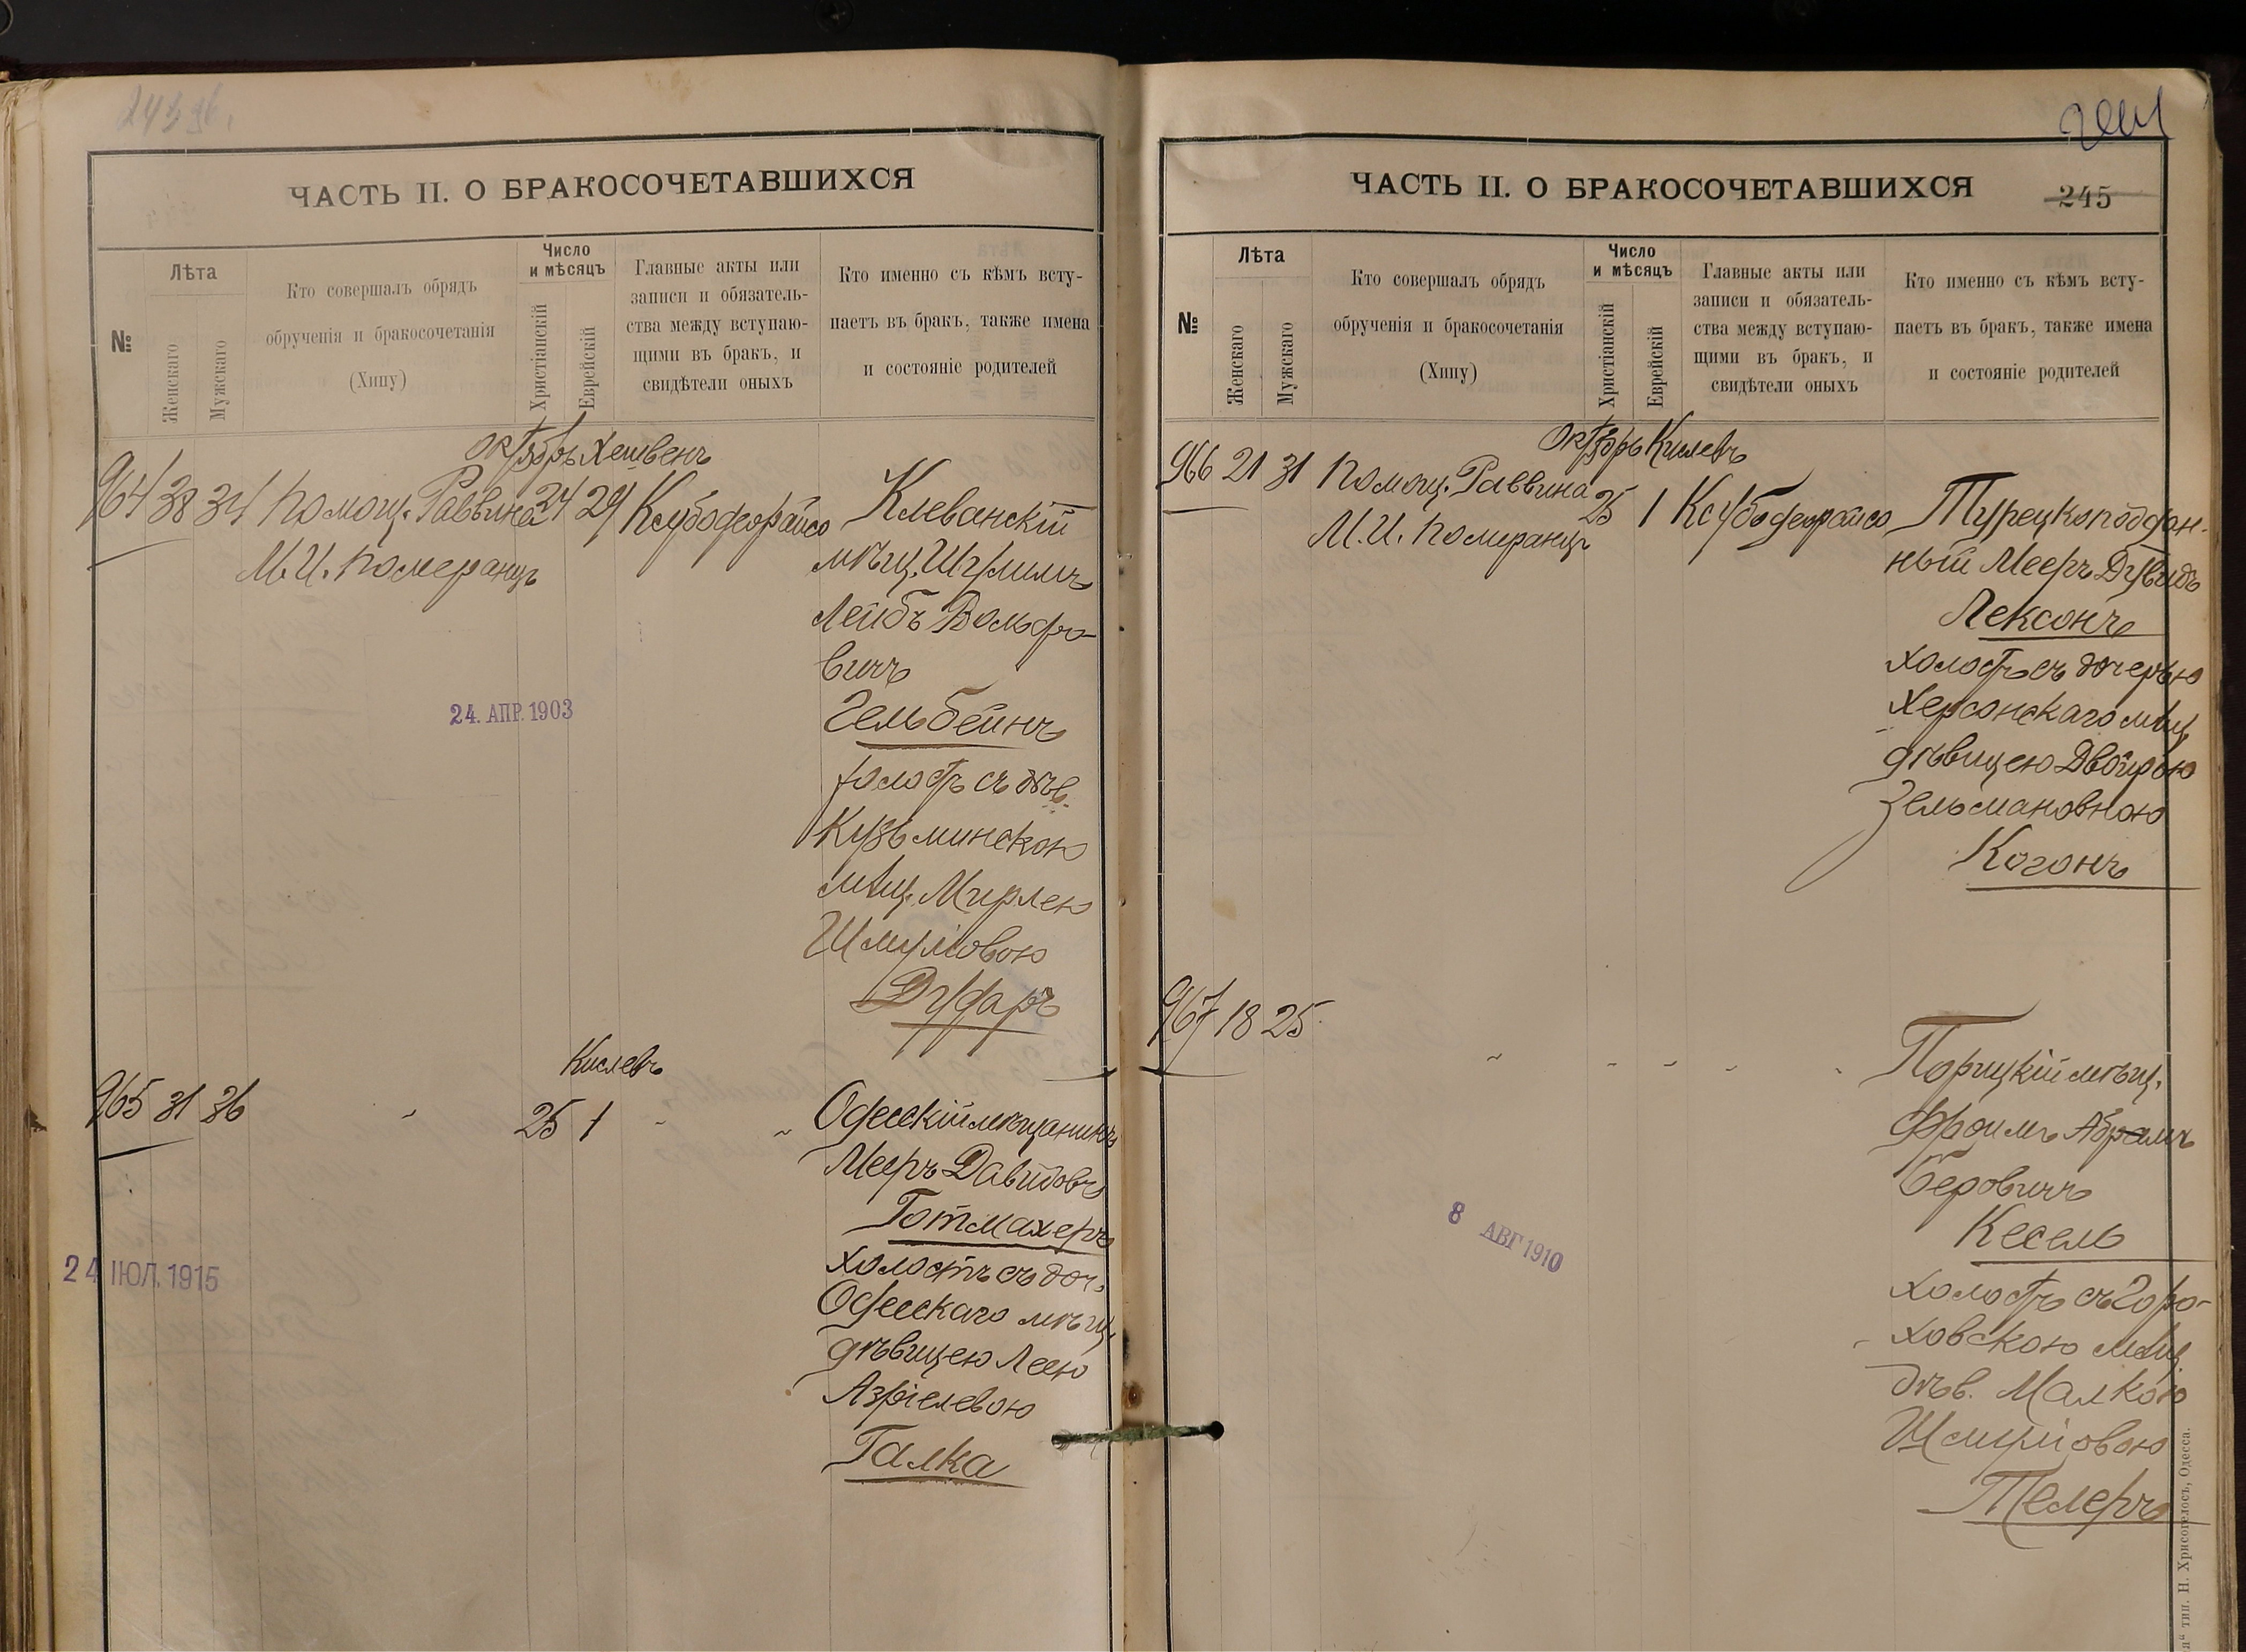 ЧАСТЬ II. О БРАКОСОЧЕТАВШИХСЯ
№
Лѣта
Женскаго
Мужскаго
Кто совершалъ обрядъ
обрученія и бракосочетанія
(Хипу)
Число
и мѣсяцъ
Христіанскій
Еврейскій
Главные акты или
записи и обязатель-
ства между вступаю-
щими въ бракъ, и
свидѣтели оныхъ
Кто именно съ кѣмъ всту-
паетъ въ бракъ, также имена
и состояніе родителей
Октябрь Хешвенъ
964 38 34 Помощ. Раввина 24 29 Ксубодеорайсо
М. И. Померанцъ
Клеванскій
мѣщ. Шулимъ
Лейбъ Вольфо-
вичъ
Гельбейнъ
холостъ съ дѣв.
Кузьминскою
мѣщ. Мирлею
Шмулiовою
Дударъ
24. АПР. 1903
Кислевъ
965 31 36 25 1
Одесскій мѣщанинъ
Мееръ Давидовъ
Готмахеръ
холостъ съ доч.
Одесскаго мѣщ.
дѣвицею Леею
Азріелевою
Галка
24 ІЮЛ. 1915
ЧАСТЬ II. О БРАКОСОЧЕТАВШИХСЯ
245
№
Лѣта
Женскаго
Мужскаго
Кто совершалъ обрядъ
обрученія и бракосочетанія
(Хипу)
Число
и мѣсяцъ
Христіанскій
Еврейскій
Главные акты или
записи и обязатель-
ства между вступаю-
щими въ бракъ, и
свидѣтели оныхъ
Кто именно съ кѣмъ всту-
паетъ въ бракъ, также имена
и состояніе родителей
Октябрь Кислевъ
966 21 31 Помощ. Раввина 25 1 Ксубодеорайсо
М. И. Померанцъ
Турецкоподдан-
ный Мееръ Дувидъ
Лексонъ
холостъ съ дочерью
Херсонскаго мѣщ
дѣвицею Двойрою
Зельмановною
Когонъ
967 18 25
Порицкій мѣщ.
Фроимъ Абрамъ
Беровичъ
Кесель
холостъ съ Горо-
ховскою мѣщ.
дѣв. Малкою
Шмулiовою
Телеръ
8 АВГ 1910
тип. Н. Хрисогелосъ, Одесса.